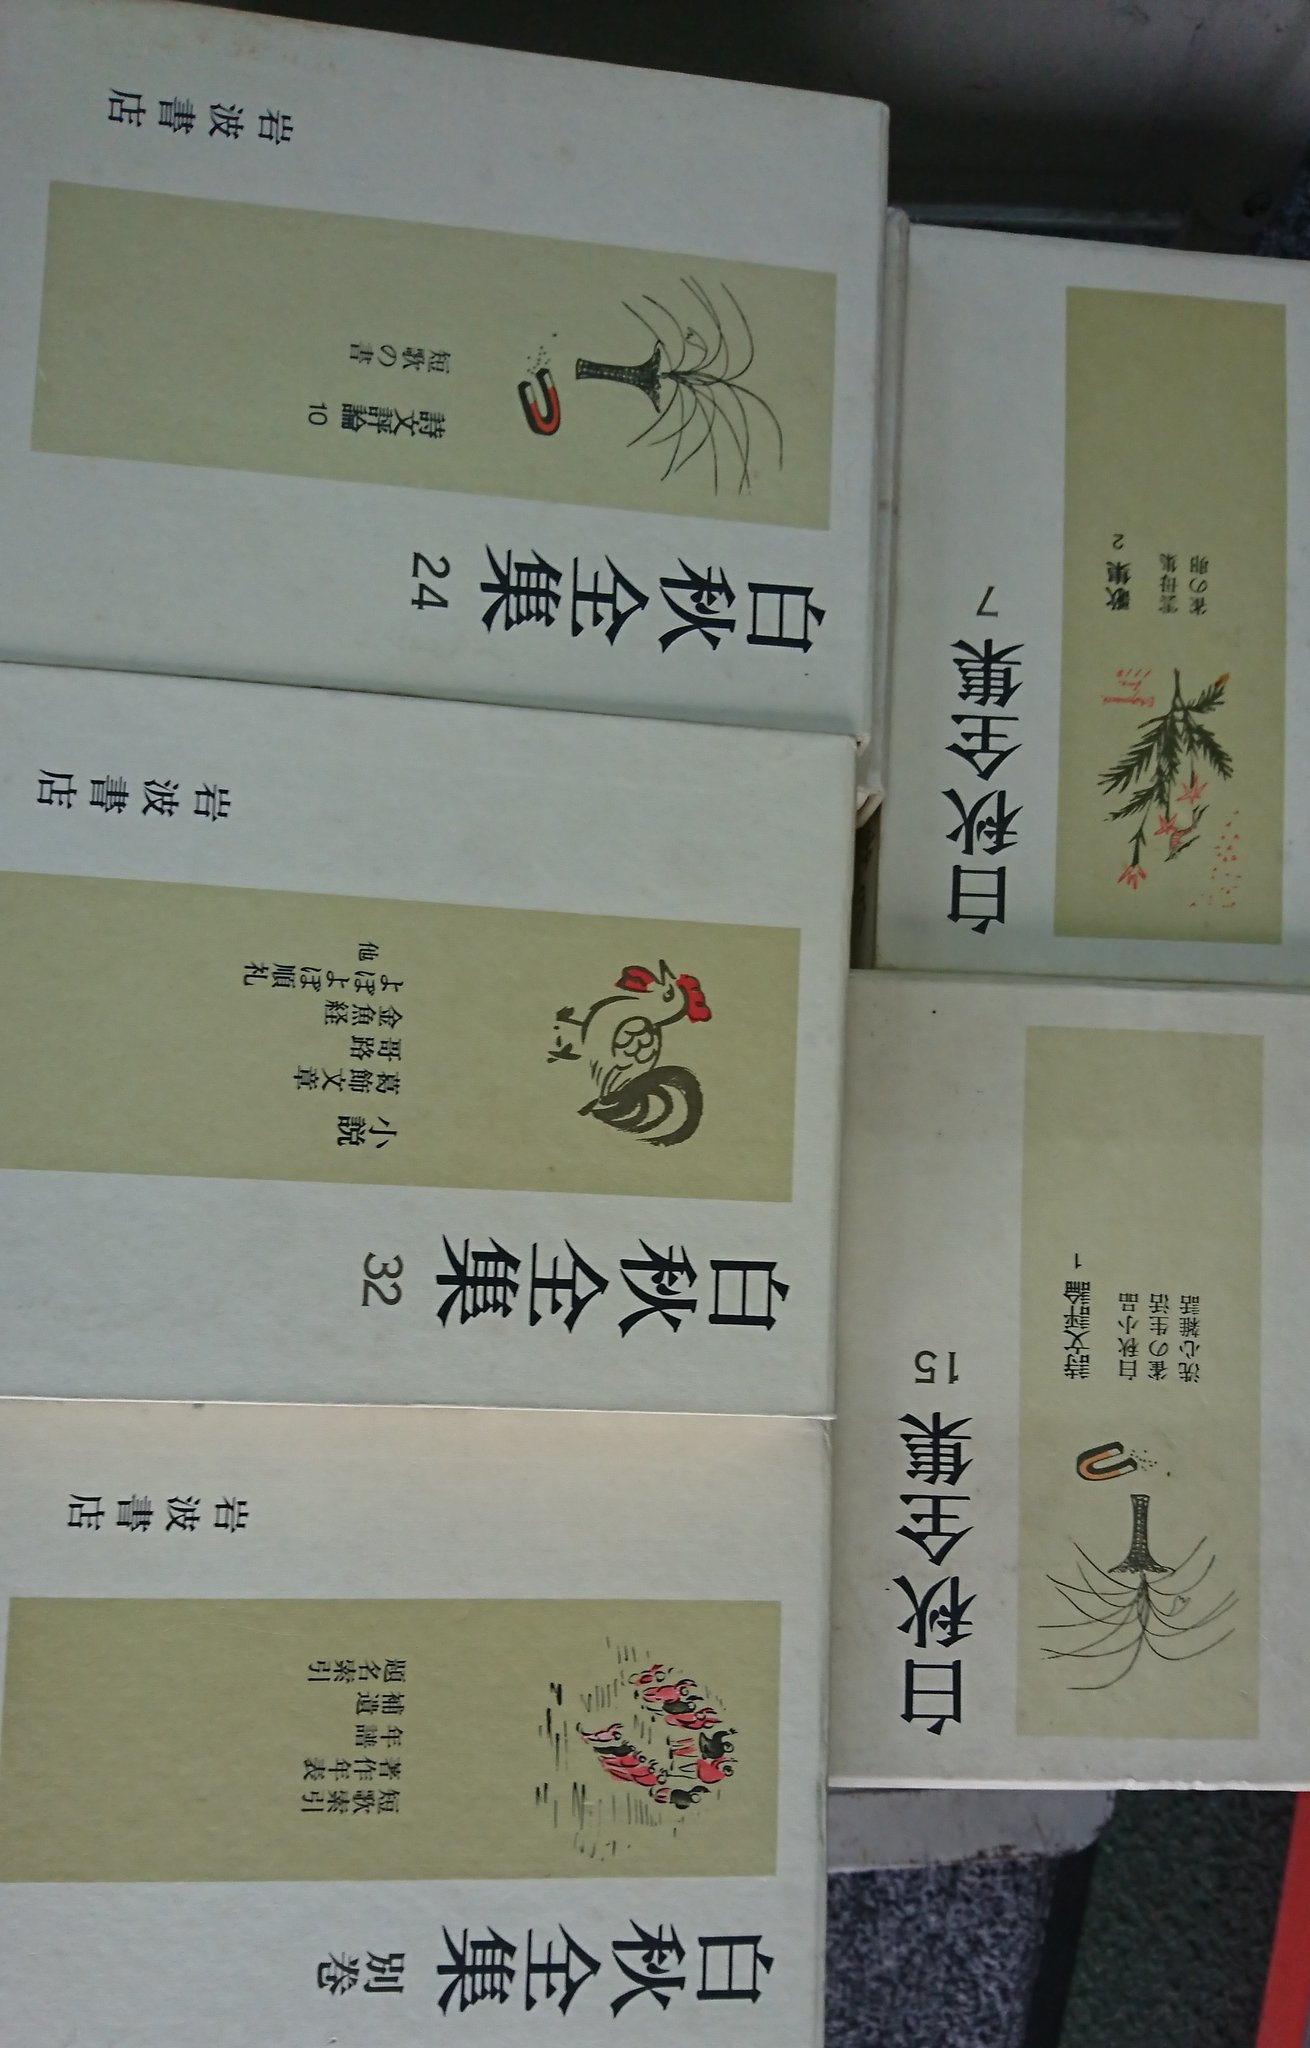 白秋全集
24
詩文評論
10
短歌の書
岩波書店
白秋全集
32
小説
葛飾文章
哥路
金魚経
よぼよぼ順礼
他
岩波書店
白秋全集
別巻
短歌索引
著作年表
年譜
補遺
題名索引
岩波書店
白秋全集
7
歌集
2
雲母集
雀の卵
白秋全集
15
詩文評論
1
白秋小品
雀の生活
洗心雑話